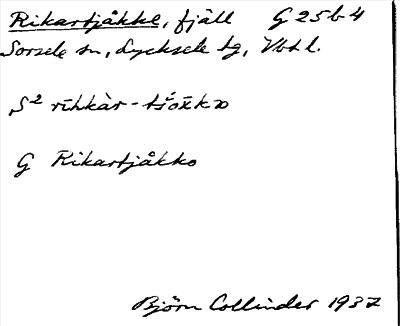 Rikartjåkke, fjäll G 25b4
Sorsele sn, Lycksele tg, Vbtl.
S² rīhkàr-
G Rikartjåkko
Björn Collinder 1937